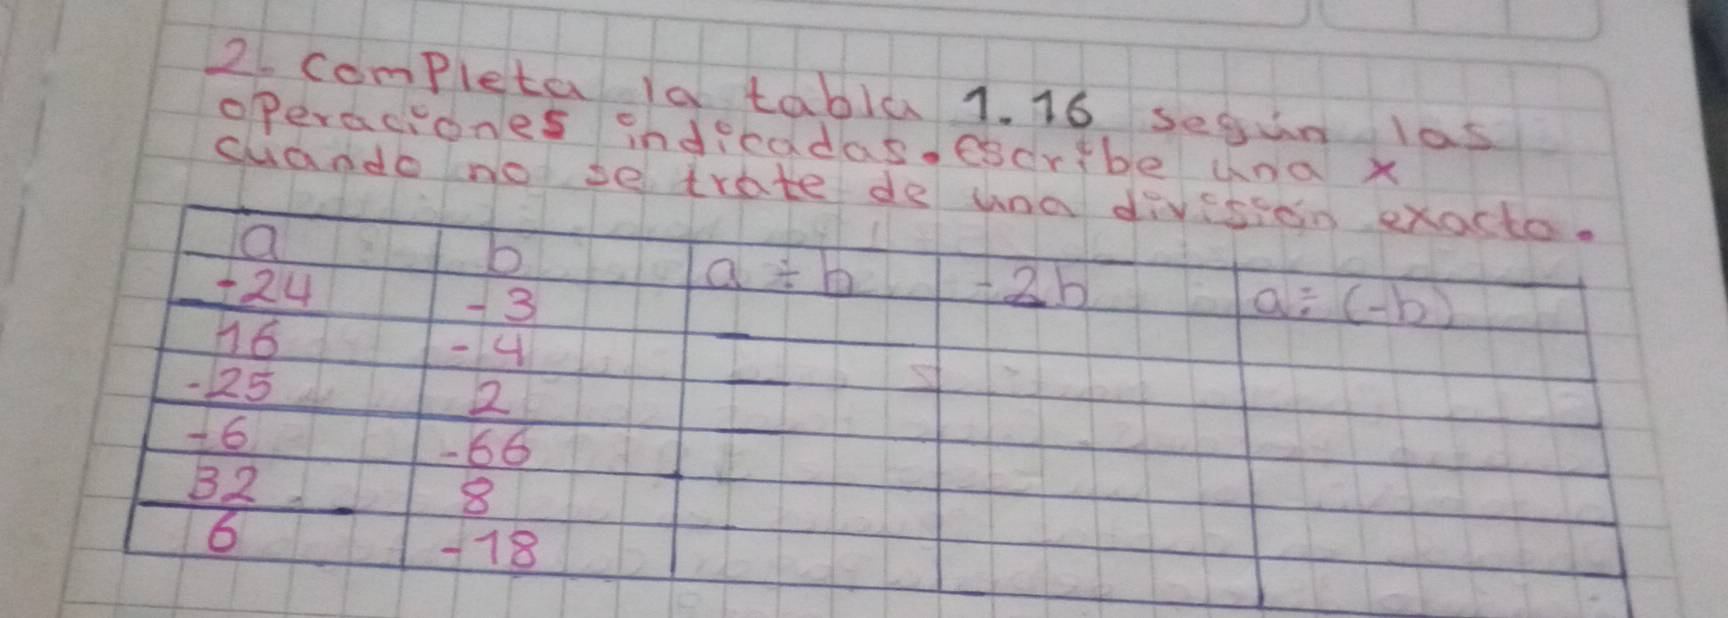 2. completa la tabla 1.16 según las
operaciones indicadas. escribe una x
cuando no se trate de una división exacta.
a b a ÷ b -2b a ÷ (-b)
-24 -3
16 -4
-25 2
-6 -66
32 8
6 -18